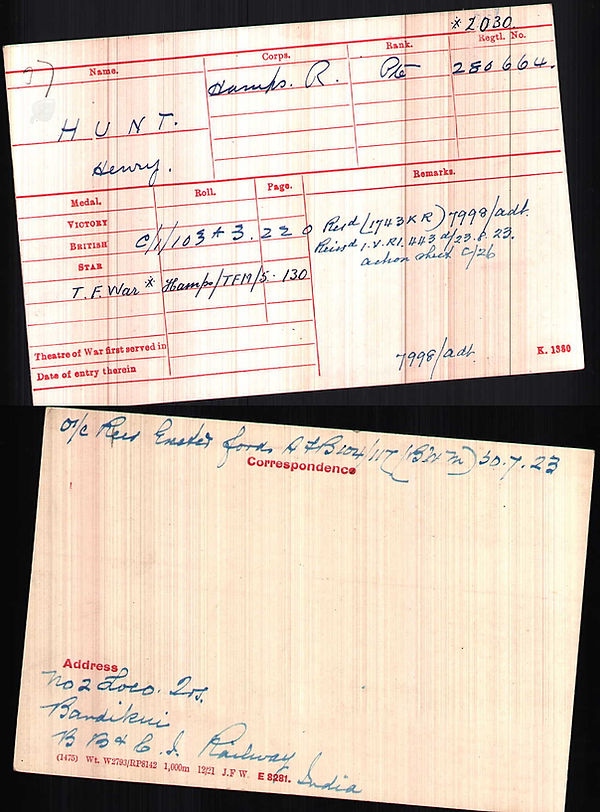 *2030.
Name. Corps. Rank. Regtl. No.
HUNT. Hamps. R. Pte 280664.
Henry.
Medal. Roll. Page. Remarks.
VICTORY
BRITISH C/1/103 A 3. 220
STAR
T.F. War * Hamps/TFM/5. 130
(1743 K R) 7998/adt.
Reissd I.V. R1. 443 d/23.8.23.
action sheet C/26
Theatre of War first served in
Date of entry therein
7998/adt.
K. 1380
O/c Recs Exeter fords A F B 104/117 (B W M) 30.7.23
Correspondence
Address
No 2 Loco. Qrs.
Bandikui
B B & C. I. Railway
India
(1475) Wt. W2793/RP8142 1,000m 12/21 J.F.W. E 8281.